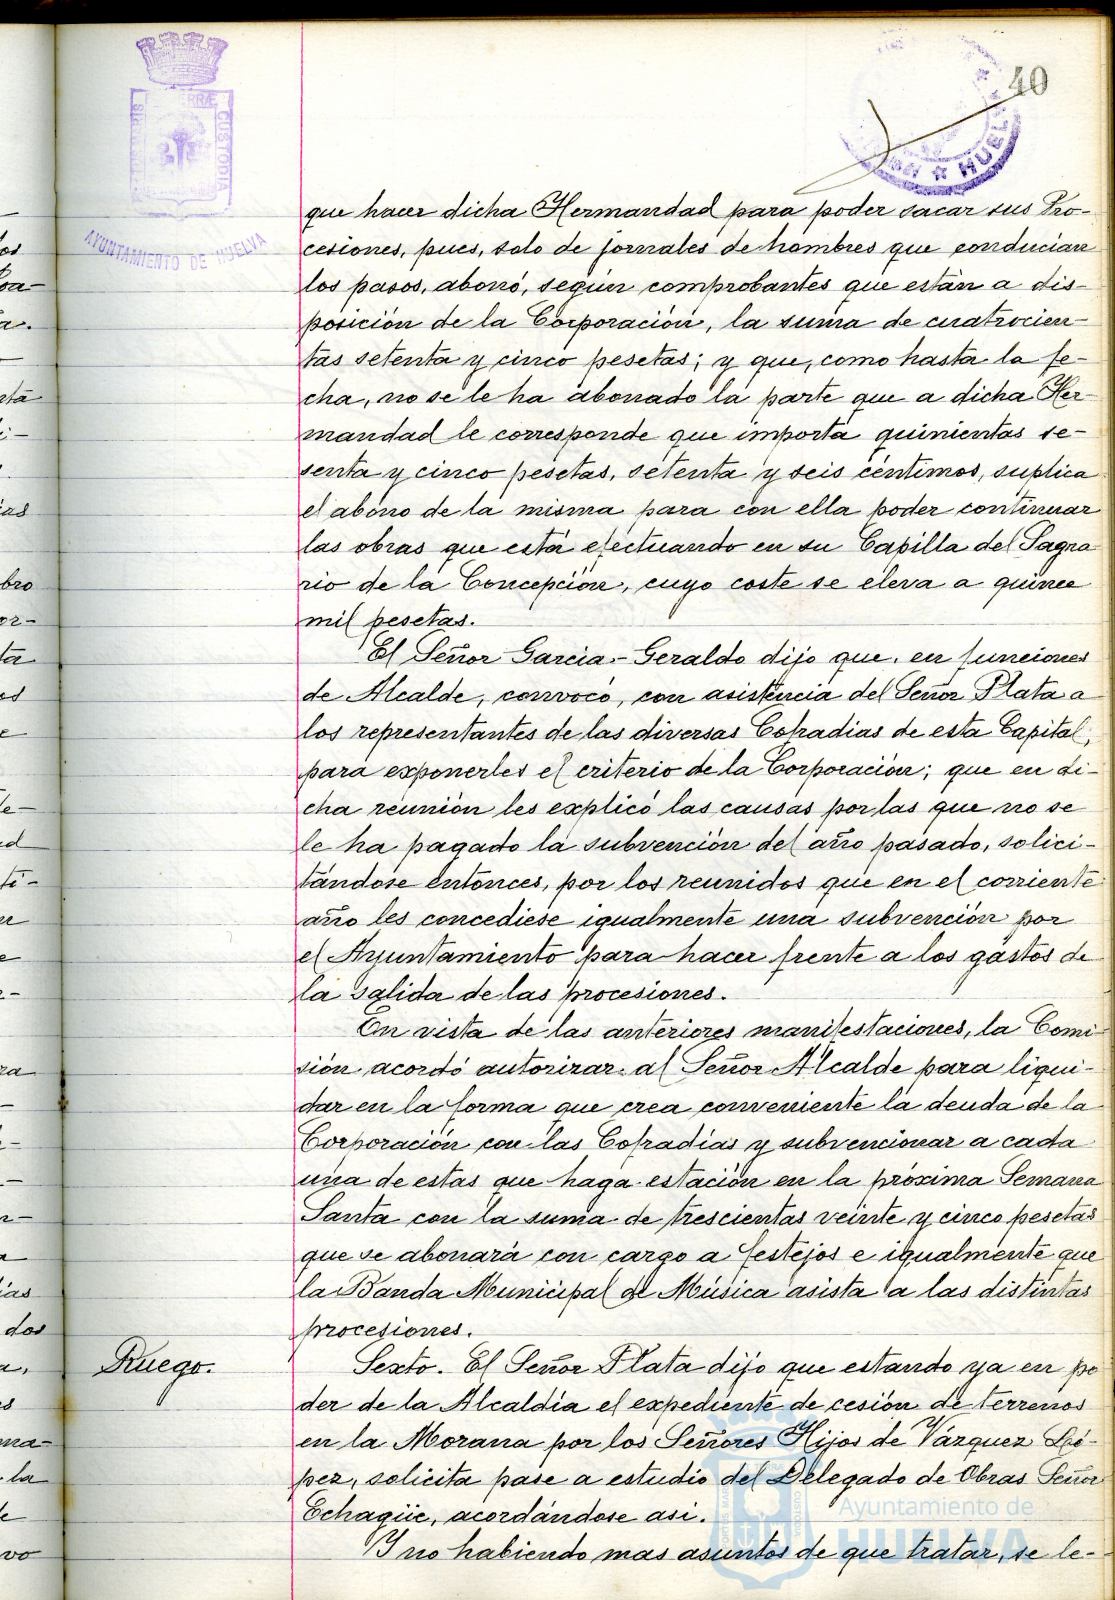 40
PORTUS MARIS ET TERRÆ CUSTODIA
AYUNTAMIENTO DE HUELVA
HUELVA
que hacer dicha Hermandad para poder sacar sus Pro-
cesiones, pues, solo de jornales de hombres que conducian
los pasos, abonó, según comprobantes que están a dis-
posición de la Corporación, la suma de cuatrocien-
tas setenta y cinco pesetas; y que, como hasta la fe-
cha, no se le ha abonado la parte que a dicha Her-
mandad le corresponde que importa quinientas se-
senta y cinco pesetas, setenta y seis céntimos, suplica
el abono de la misma para con ella poder continuar
las obras que está efectuando en su Capilla del Sagra
rio de la Concepción, cuyo coste se eleva a quince
mil pesetas.
El Señor Garcia-Geraldo dijo que, en funciones
de Alcalde, convocó, con asistencia del Señor Plata a
los representantes de las diversas Cofradias de esta Capital,
para exponerles el criterio de la Corporación; que en di-
cha reunión les explicó las causas por las que no se
le ha pagado la subvención del año pasado, solici-
tándose entonces, por los reunidos que en el corriente
año les concediese igualmente una subvención por
el Ayuntamiento para hacer frente a los gastos de
la salida de las procesiones.
En vista de las anteriores manifestaciones, la Comi-
sión acordó autorizar al Señor Alcalde para liqui-
dar en la forma que crea conveniente la deuda de la
Corporación con las Cofradías y subvencionar a cada
una de estas que haga estación en la próxima Semana
Santa con la suma de trescientas veinte y cinco pesetas
que se abonará con cargo a festejos e igualmente que
la Banda Municipal de Música asista a las distintas
procesiones.
Ruego.
Sexto. El Señor Plata dijo que estando ya en po
der de la Alcaldía el expediente de cesión de terrenos
en la Morana por los Señores Hijos de Vázquez Ló-
pez, solicita pase a estudio del Delegado de Obras Señor
Echagüe, acordándose asi.
Y no habiendo mas asuntos de que tratar, se le-
Ayuntamiento de
HUELVA